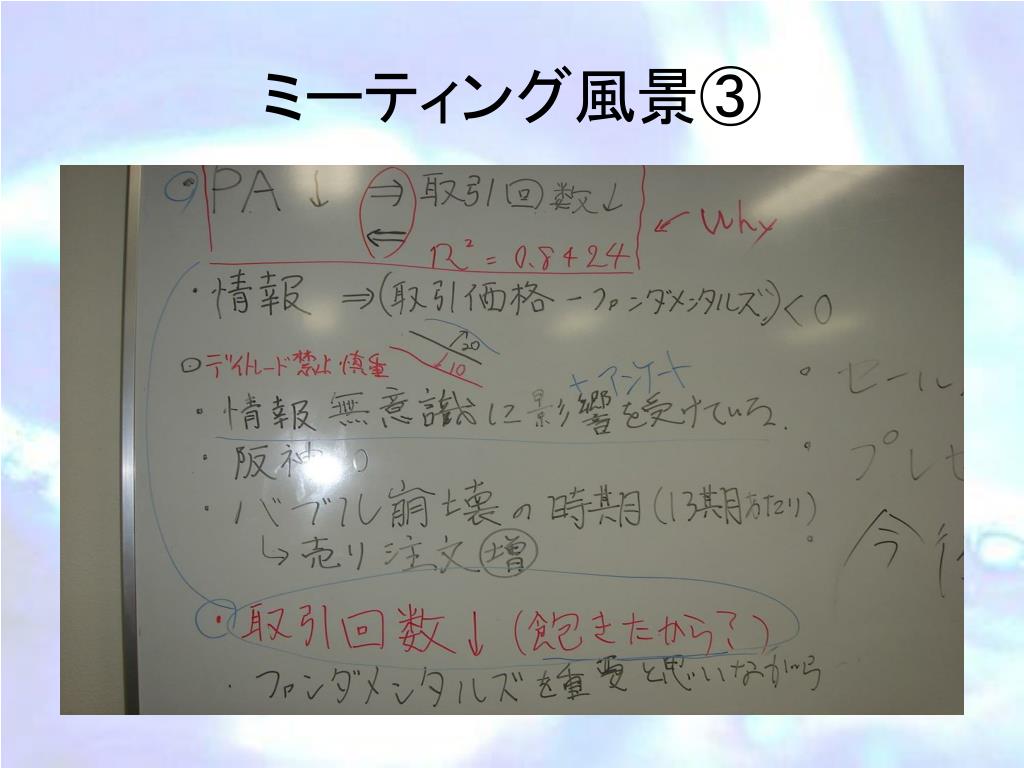 ミーティング風景③
PA ↓ ⇒ 取引回数↓
⇐ R² = 0.8424
← Why
・情報 ⇒ (取引価格 − ファンダメンタルズ) < 0
20
10
◎デイトレード禁止 慎重
+アンケート
・情報無意識に影響を受けている.
・阪神
・バブル崩壊の時期(13期あたり)
↳ 売り注文 増
・取引回数↓ (飽きたから?)
・ファンダメンタルズを重要と思いながら
・セール
・プレゼ
今後